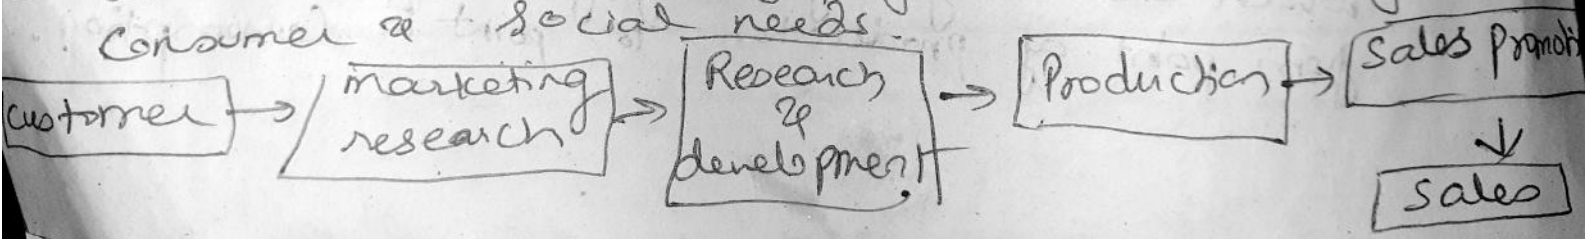 Consumer & social needs.
customer
marketing
research
Research
&
development
Production
Sales promoti
Sales